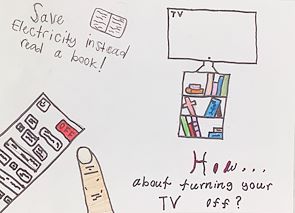 Save
Electricity instead
read a book!
TV
OFF
How...
about turning your
TV off?